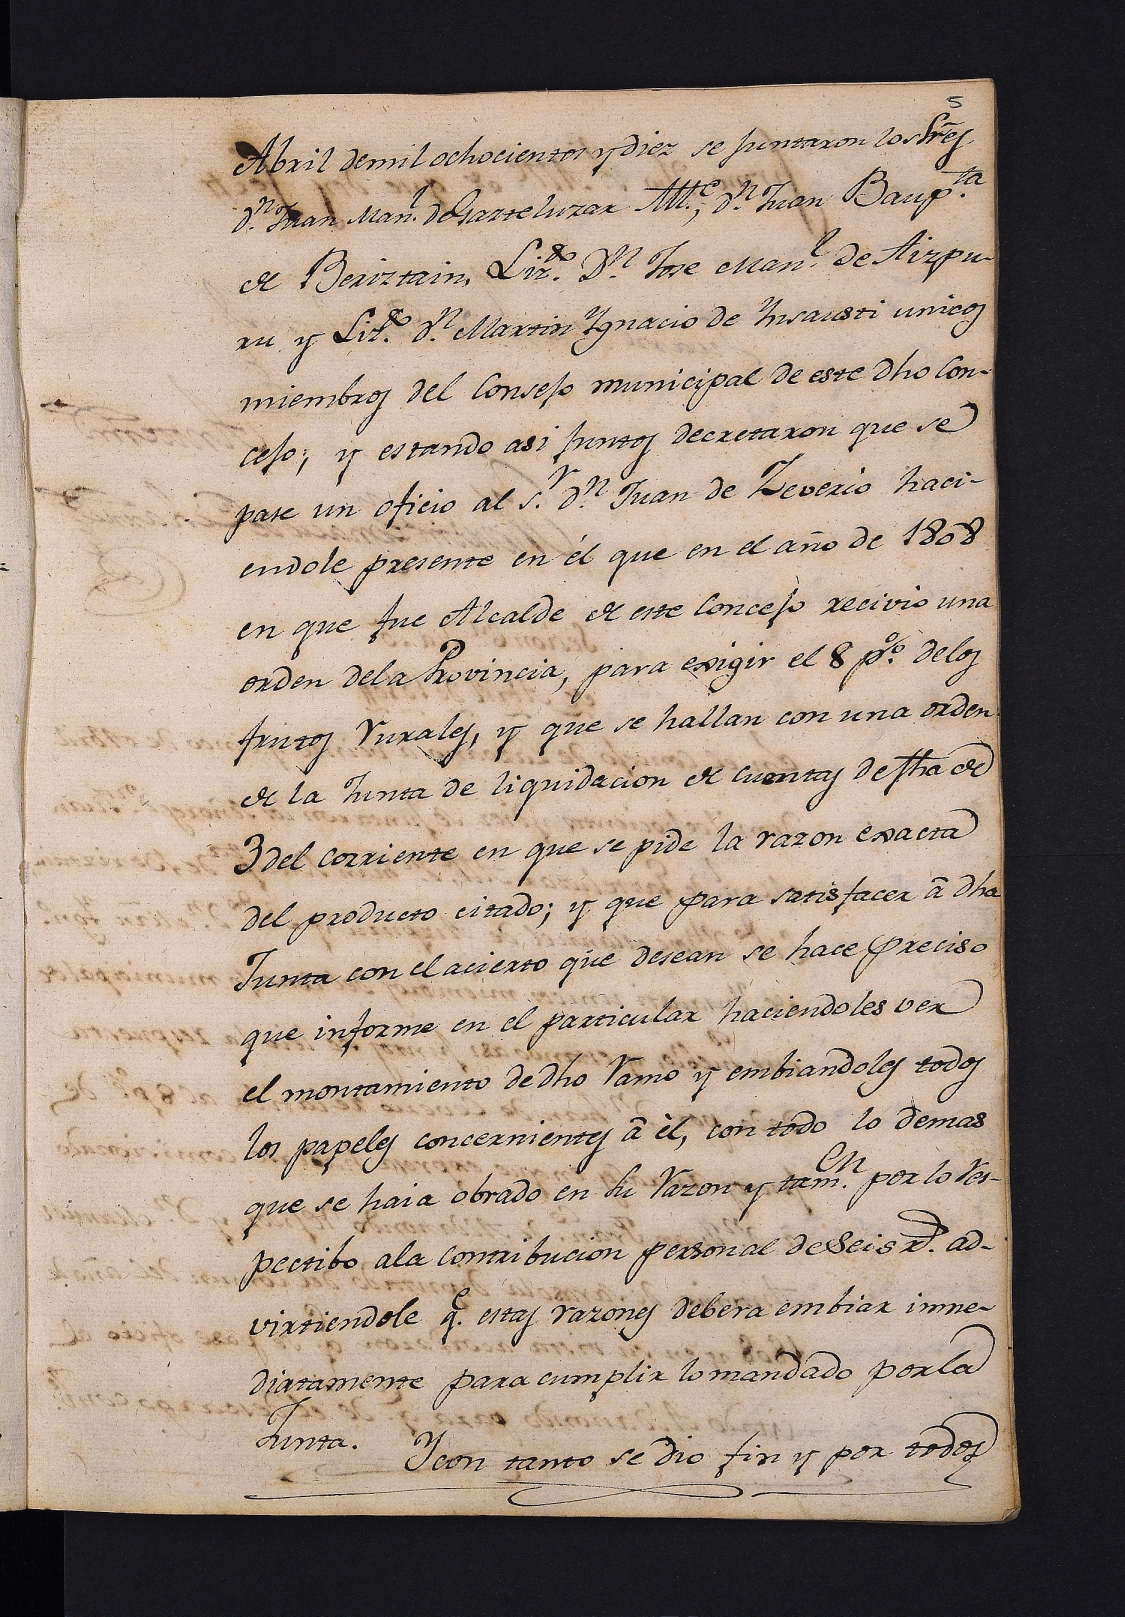 5
Abril demil ochocientos y diez se juntaron los Sres
dn. Juan Manl. de Garteluzar Alle., dn. Juan Baupta
de Beriztain, Lizdo. Dn. Jose Manl. de Aizpu-
ru y Lizdo. dn. Martin Ygnacio de Ynsausti unicos
miembros del Consejo municipal de este dho Con-
cejo; y estando asi juntos decretaron que se
pase un oficio al sr. dn. Juan de Zeverio haci-
endole presente en él que en el año de 1808
en que fue Alcalde de este Concejo recivio una
orden dela Provincia, para exigir el 8 p%. delos
frutos rurales, y que se hallan con una orden
de la Junta de liquidacion de cuentas de fha de
3 del corriente en que se pide la razon exacta
del producto citado; y que para satisfacer â dha
Junta con el acierto que desean se hace preciso
que informe en el particular haciendoles ver
el montamiento de dho ramo y embiandoles todos
los papeles concernientes â èl, con todo lo demas
que se haia obrado en su razon y tamen. por lo res-
pectibo ala contribucion personal de Seis rs. ad-
virtiendole qe. estas razones debera embiar imne-
diatamente para cumplir lo mandado por la
Junta. Y con tanto se dio fin y por todos